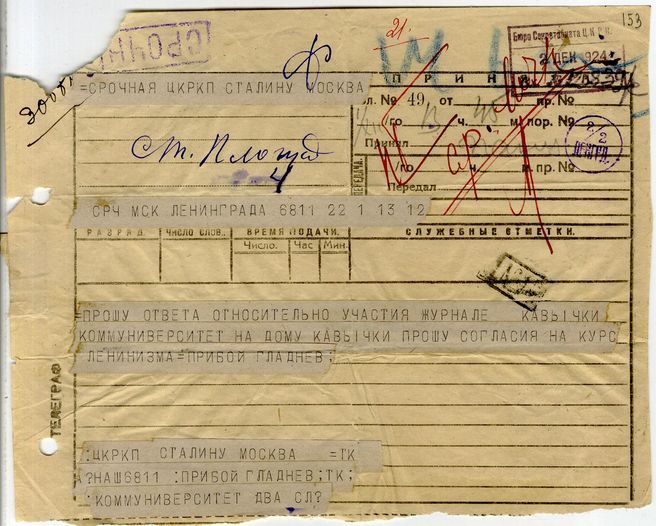 153
21.
СРОЧН
Бюро Секретариата Ц.К.Р.П.
2 ДЕК 924
ПРИН
=СРОЧНАЯ ЦКРКП СТАЛИНУ МОСКВА
№ 49 от пр. №
/го 13 ч. 45 м. пор. №
Принял
Ст. Площад
4
ПЕРЕДАЧА.
/го ч. м. пр. №
Передал
2/12
ЦЕНТР.
СРЧ МСК ЛЕНИНГРАДА 6811 22 1 13 12
РАЗРЯД. ЧИСЛО СЛОВ. ВРЕМЯ ПОДАЧИ. СЛУЖЕБНЫЕ ОТМЕТКИ.
Число. Час Мин.
=ПРОШУ ОТВЕТА ОТНОСИТЕЛЬНО УЧАСТИЯ ЖУРНАЛЕ КАВЫЧКИ
КОММУНИВЕРСИТЕТ НА ДОМУ КАВЫЧКИ ПРОШУ СОГЛАСИЯ НА КУРС
ЛЕНИНИЗМА=ПРИБОЙ ГЛАДНЕВ;
ТЕЛЕГРАФ
:ЦКРКП СТАЛИНУ МОСКВА =ТК
А?НАШ6811 :ПРИБОЙ ГЛАДНЕВ;ТК;
:КОММУНИВЕРСИТЕТ ДВА СЛ?